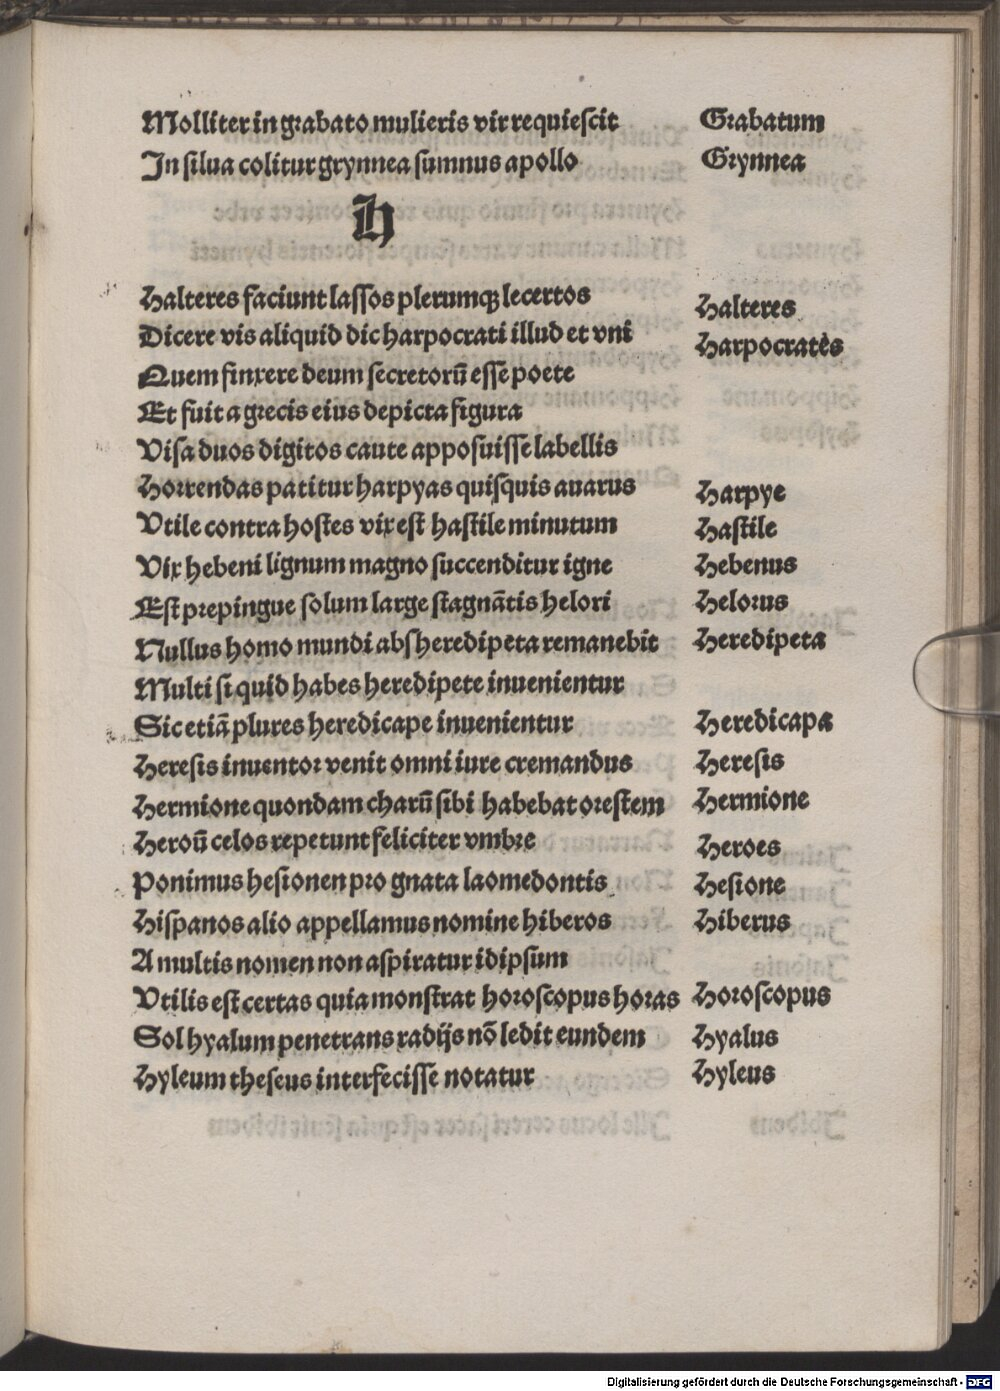 Molliter in grabato mulieris vir requiescit Grabatum
In silua colitur grynnea sumnus apollo Grynnea
H
Halteres faciunt lassos plerumqꝫ lecertos Halteres
Dicere vis aliquid dic harpocrati illud et vni Harpocratēs
Quem finxere deum secretorū esse poete
Et fuit a grecis eius depicta figura
Visa duos digitos caute apposuisse labellis
Horrendas patitur harpyas quisquis auarus Harpye
Vtile contra hostes vix est hastile minutum Hastile
Vix hebeni lignum magno succenditur igne Hebenus
Est prepingue solum large stagnātis helori Helorus
Nullus homo mundi absheredipeta remanebit Heredipeta
Multi si quid habes heredipete inuenientur
Sic etiā plures heredicape inuenientur Heredicapa
Heresis inuentor venit omni iure cremandus Heresis
Hermione quondam charū sibi habebat orestem Hermione
Heroū celos repetunt feliciter vmbre Heroes
Ponimus hesionen pro gnata laomedontis Hesione
Hispanos alio appellamus nomine hiberos Hiberus
A multis nomen non aspiratur idipsum
Vtilis est certas quia monstrat horoscopus horas Horoscopus
Sol hyalum penetrans radijs nō ledit eundem Hyalus
Hyleum theseus interfecisse notatur Hyleus
Digitalisierung gefördert durch die Deutsche Forschungsgemeinschaft - DFG